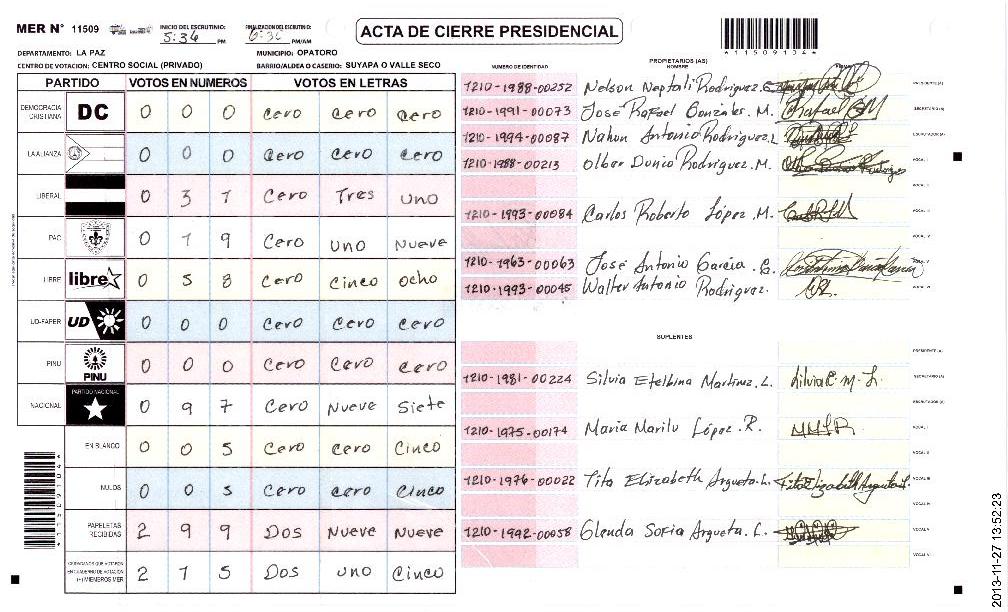 MER N° 11509
INICIO DEL ESCRUTINIO: 5:36 PM
FINALIZACION DEL ESCRUTINIO: 6:36 PM/AM
ACTA DE CIERRE PRESIDENCIAL
*11509104*
DEPARTAMENTO: LA PAZ
MUNICIPIO: OPATORO
CENTRO DE VOTACION: CENTRO SOCIAL (PRIVADO)
BARRIO/ALDEA O CASERIO: SUYAPA O VALLE SECO
PARTIDO VOTOS EN NUMEROS VOTOS EN LETRAS
DEMOCRACIA CRISTIANA DC 0 0 0 Cero Cero Cero
LA ALIANZA 0 0 0 Cero Cero Cero
LIBERAL 0 3 1 Cero Tres uno
PAC 0 1 9 Cero uno Nueve
LIBRE libre 0 5 8 Cero Cinco ocho
UD-FAPER UD 0 0 0 Cero Cero Cero
PINU PINU 0 0 0 Cero Cero Cero
NACIONAL PARTIDO NACIONAL 0 9 7 Cero Nueve Siete
EN BLANCO 0 0 5 Cero Cero Cinco
NULOS 0 0 5 Cero Cero Cinco
PAPELETAS RECIBIDAS 2 9 9 Dos Nueve Nueve
CIUDADANOS QUE VOTARON EN CUADERNO DE VOTACION (+) MIEMBROS MER 2 1 5 Dos uno Cinco
*11509104*
PROPIETARIOS (AS)
NUMERO DE IDENTIDAD NOMBRE FIRMA
1210-1988-00252 Nelson Neptali Rodriguez. PRESIDENTE (A)
1210-1991-00073 José Rafael Gonzales. M. SECRETARIO (A)
1210-1994-00087 Nahun Antonio Rodriguez. L ESCRUTADOR (A)
1210-1988-00213 Olber Donio Rodriguez. M. VOCAL I
VOCAL II
1210-1993-00084 Carlos Roberto López. M. VOCAL III
VOCAL IV
1210-1963-00063 José Antonio García. G. VOCAL V
1210-1993-00045 Walter Antonio Rodriguez. VOCAL VI
SUPLENTES
PRESIDENTE (A)
1210-1981-00224 Silvia Etelbina Martinez. L. Silvia E. M. L. SECRETARIO (A)
ESCRUTADOR (A)
1210-1975-00174 Maria Marilu López. R. MMLR VOCAL I
VOCAL II
1210-1976-00022 Tito Elizabeth Argueta. L. Tito Elizabeth Argueta L. VOCAL III
VOCAL IV
1210-1992-00058 Glenda Sofia Argueta. L. VOCAL V
VOCAL VI
2013-11-27 13:52:23